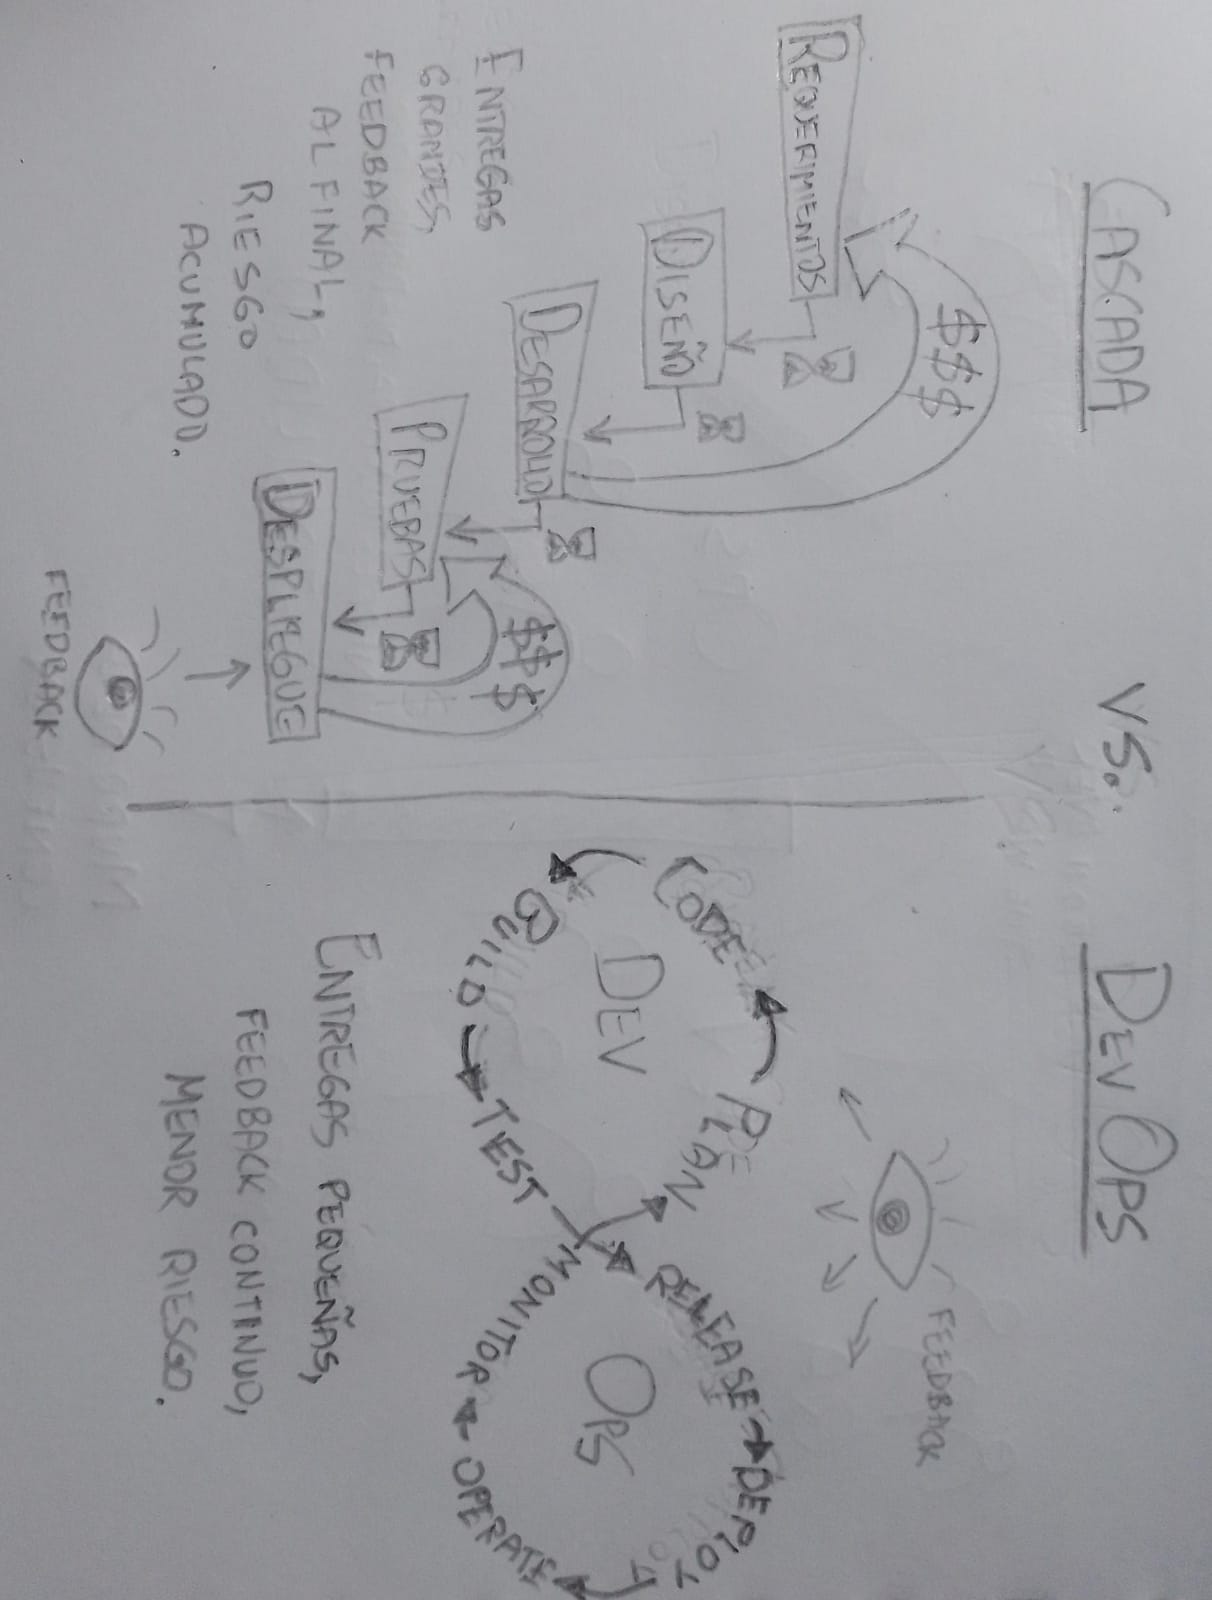 CASCADA VS. DEVOPS
$$$
REQUERIMIENTOS
DISEÑO
DESARROLLO
$$$
PRUEBAS
DESPLIEGUE
FEEDBACK
ENTREGAS
GRANDES,
FEEDBACK
AL FINAL,
RIESGO
ACUMULADO.
FEEDBACK
PLAN
CODE
BUILD
TEST
DEV
RELEASE
DEPLOY
OPERATE
MONITOR
OPS
ENTREGAS PEQUEÑAS,
FEEDBACK CONTINUO,
MENOR RIESGO.